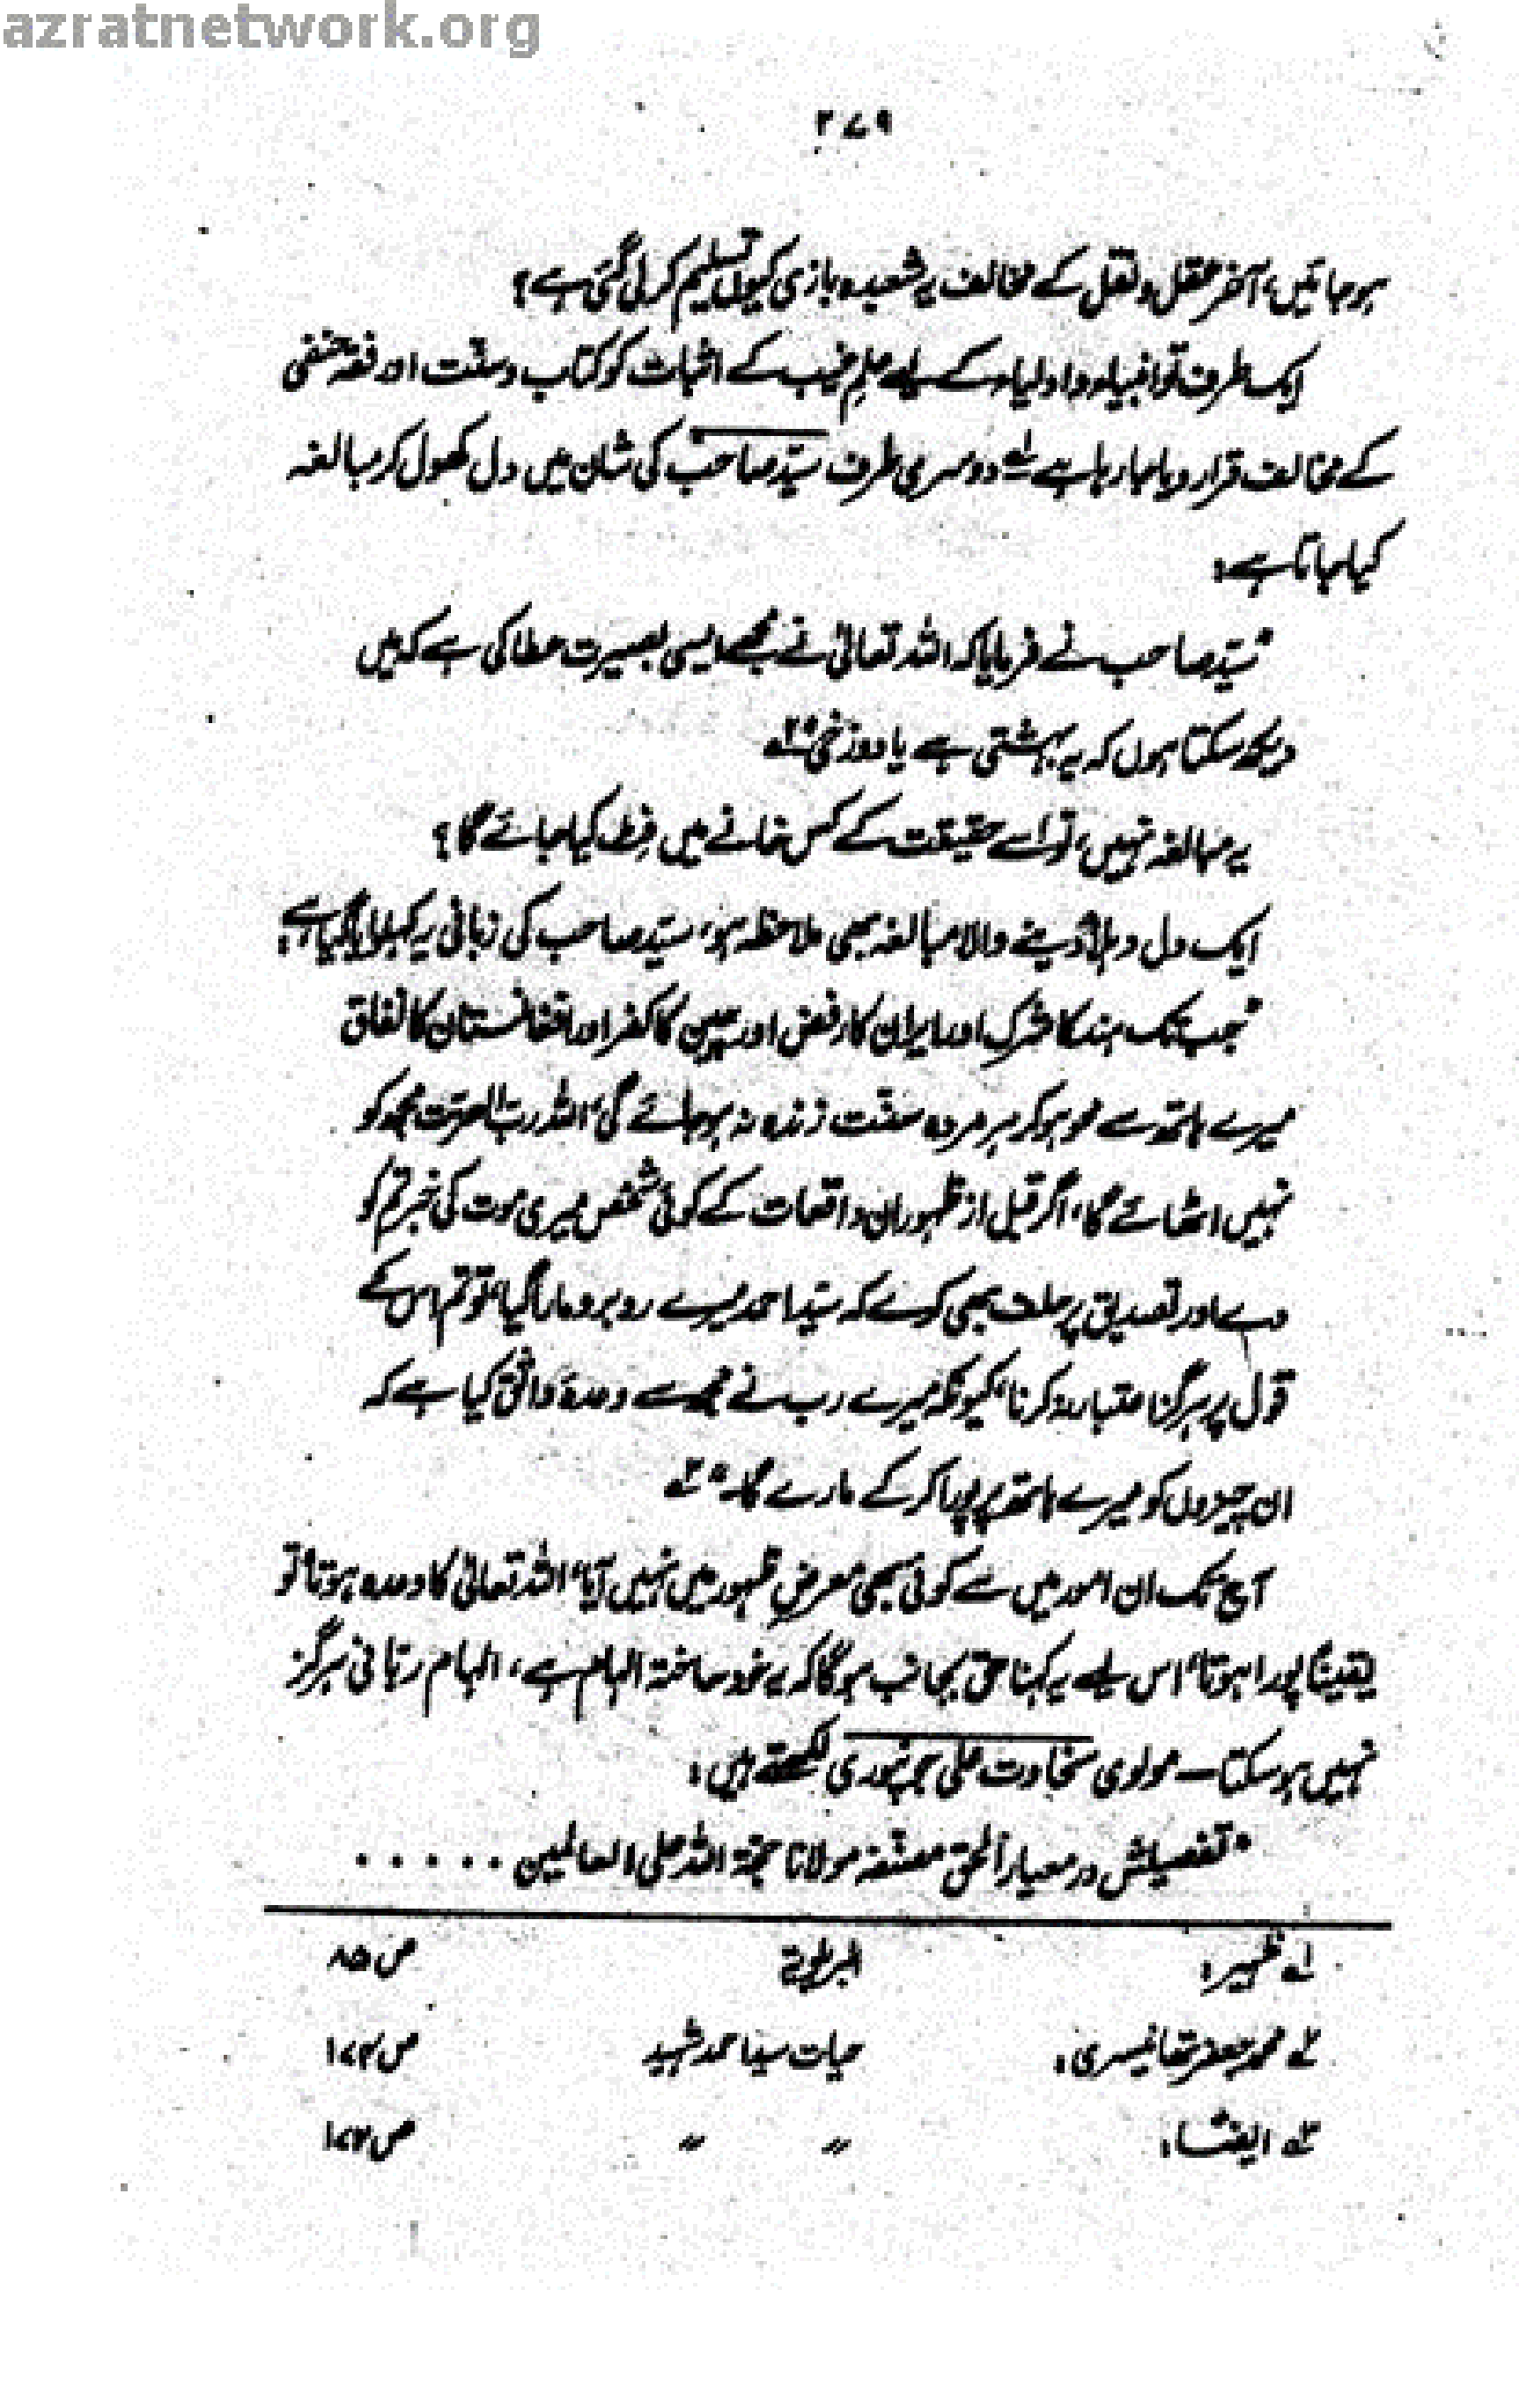 azratnetwork.org
۲۷۹
ہوجائیں، آخر عقل و نقل کے مخالف یہ شعبدہ بازی کیوں تسلیم کرلی گئی ہے؟
ایک طرف تو انبیاء و اولیاء کے لیے علمِ غیب کے اثبات کو کتاب و سنّت اور فقہ حنفی
کے مخالف قرار دیا جارہا ہے لہ دوسری طرف سیّد صاحب کی شان میں دل کھول کر مبالغہ
کیا جاتا ہے:
"سیّد صاحب نے فرمایا کہ اللہ تعالیٰ نے مجھے ایسی بصیرت عطا کی ہے کہ میں
دیکھ سکتا ہوں کہ یہ بہشتی ہے یا دوزخی" ۲ہ
یہ مبالغہ نہیں، تو اسے حقیقت کے کس خانے میں فِٹ کیا جائے گا؟
ایک دل دہلا دینے والا مبالغہ بھی ملاحظہ ہو، سیّد صاحب کی زبانی یہ کہلوایا گیا ہے:
"جب تک ہند کا شرک اور ایران کا رفض اور چین کا کفر اور افغانستان کا نفاق
میرے ہاتھ سے محو ہو کر ہر مردہ سنّت زندہ نہ ہوجائے گی، اللہ ربّ العزت مجھ کو
نہیں اٹھائے گا، اگر قبل از ظہور ان واقعات کے کوئی شخص میری موت کی خبر تم کو
دے اور تصدیق پر حلف بھی کرے کہ سیّد احمد میرے روبرو مارا گیا، تو تم اس کے
قول پر ہرگز اعتبار نہ کرنا، کیونکہ میرے رب نے مجھ سے وعدۂ واثق کیا ہے کہ
ان چیزوں کو میرے ہاتھ پر پورا کرکے مارے گا۔" ۳ہ
آج تک ان امور میں سے کوئی بھی معرضِ ظہور میں نہیں آیا، اللہ تعالیٰ کا وعدہ ہوتا، تو
یقیناً پورا ہوتا، اس لیے یہ کہنا حق بجانب ہوگا کہ یہ خود ساختہ الہام ہے، الہام ربّانی ہرگز
نہیں ہوسکتا۔ مولوی سخاوت علی جونپوری لکھتے ہیں:
"تفصیلش در معیار الحق مصنّفہ مولانا حجۃ اللہ علی العالمین . . . . . .
لہ ظہیر: البریلویۃ ص ۸۵
۲ہ محمد جعفر تھانیسری: حیات سید احمد شہید ص ۱۷۲
۳ہ ایضاً: " " ص ۱۷۲